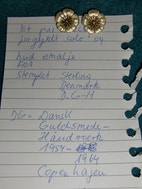 Et par
forgyldt sølv og
hvid emalje
stemplet Sterling
Denmark
D.G-H
DG= Dansk
Guldsmede-
Handwerk
1954-
1964
Copenhagen